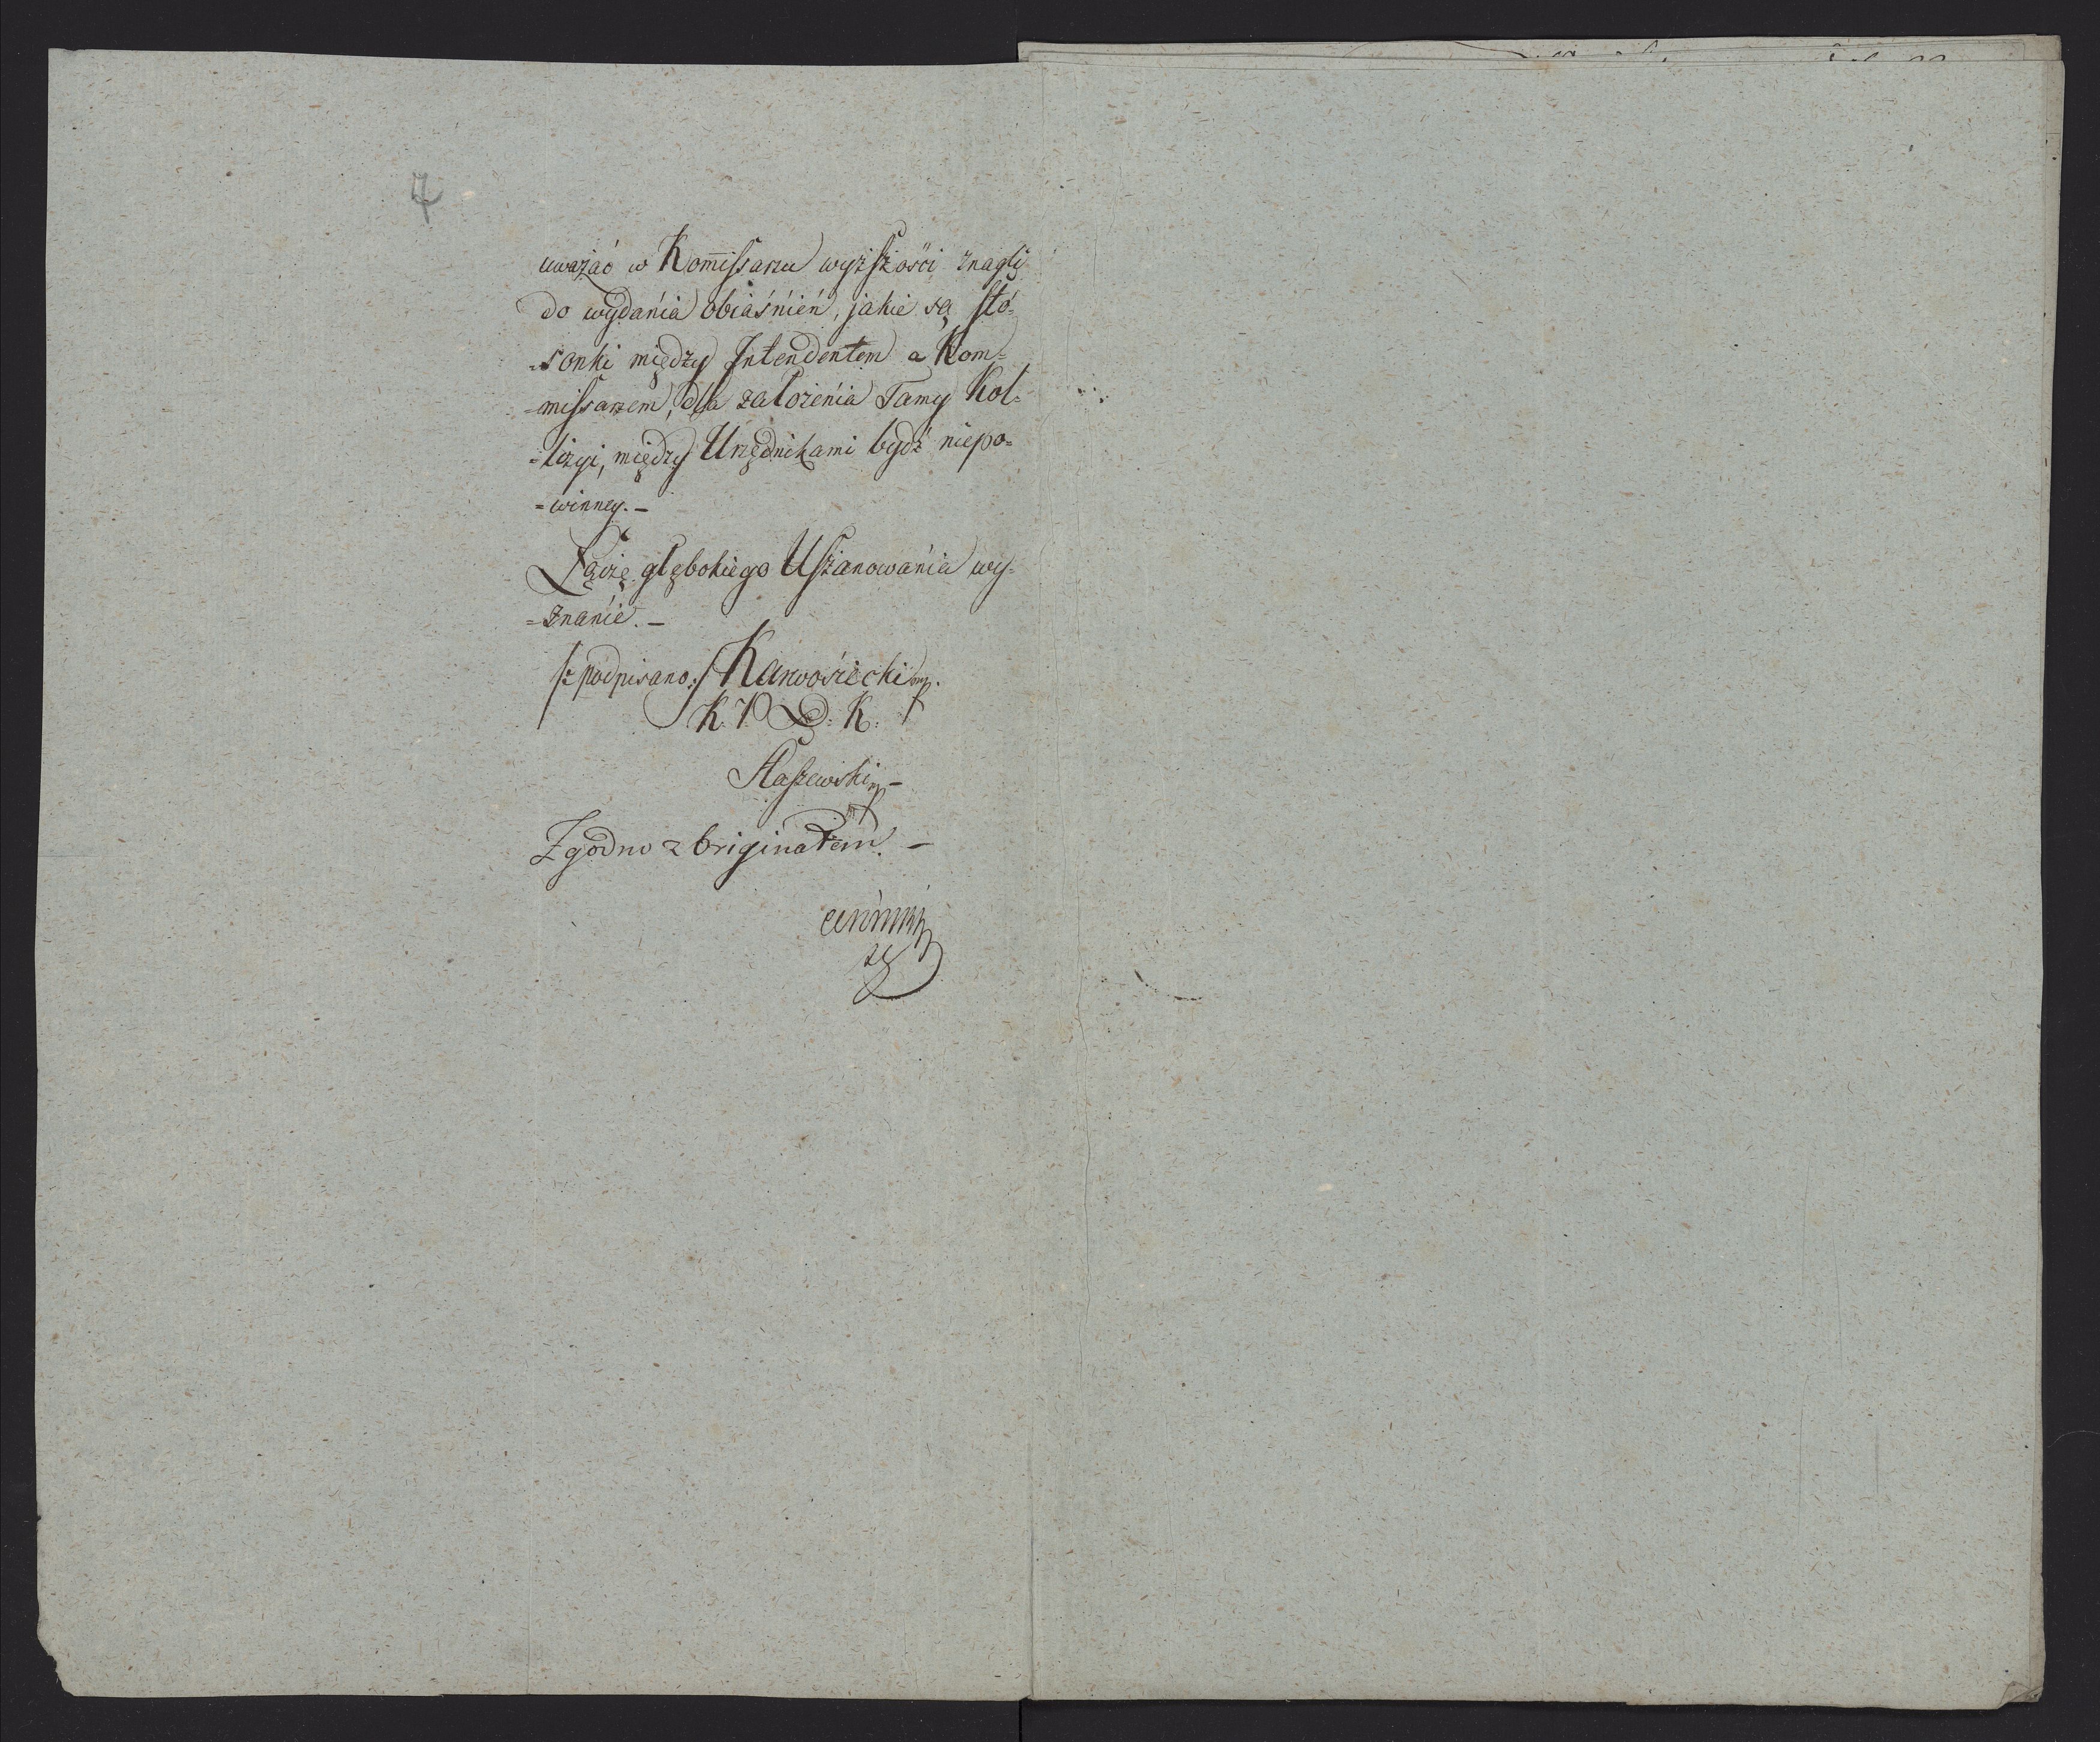 7
uważać w Kom̄issarzu wyższości znagli
do wydánia obiaśnień, jakie są stó-
=sonki między Intendentem a Kom=
=missarzem, dla założénia Tamy Kol-
=lizyi, między Urzędnikami bydź niepo=
=winney. —
Łączę głębokiego Uszanowánia wy-
=znanie. —
/: podpisano :/ Karwosiecki mp.
K. P. D: K:
Staszewski mp —
Zgodno z Originałem. —